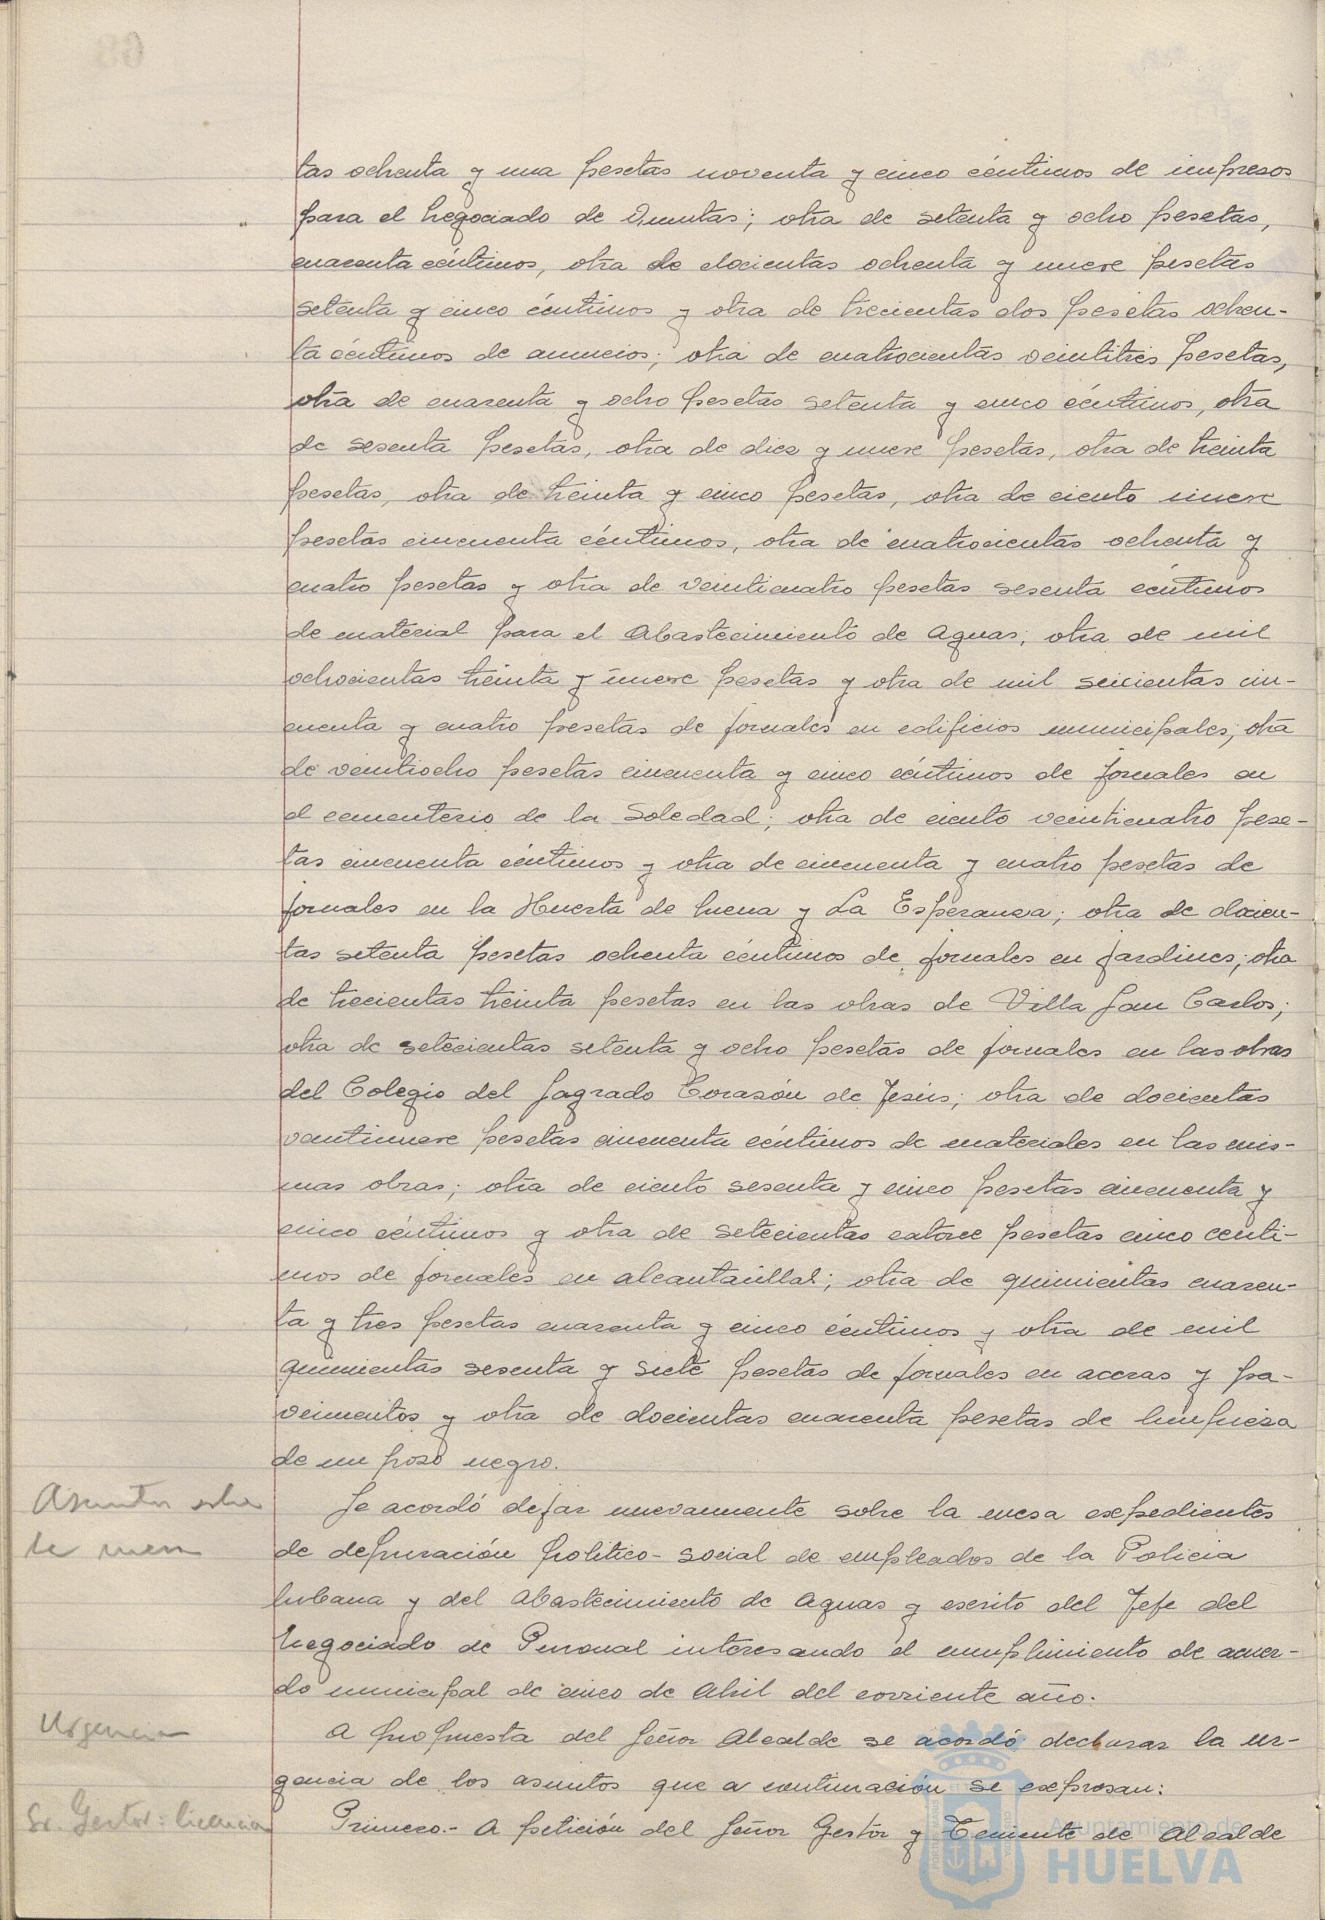 tas ochenta y una pesetas noventa y cinco céntimos de impresos
para el Negociado de Quintas; otra de setenta y ocho pesetas,
cuarenta céntimos, otra de docientas ochenta y nueve pesetas
setenta y cinco céntimos y otra de trecientas dos pesetas ochen-
ta céntimos de anuncios; otra de cuatrocientas veintitrés pesetas,
otra de cuarenta y ocho pesetas setenta y cinco céntimos, otra
de sesenta pesetas, otra de diez y nueve pesetas, otra de treinta
pesetas, otra de treinta y cinco pesetas, otra de ciento nueve
pesetas cincuenta céntimos, otra de cuatrocientas ochenta y
cuatro pesetas y otra de veinticuatro pesetas sesenta céntimos
de material para el Abastecimiento de Aguas; otra de mil
ochocientas treinta y nueve pesetas y otra de mil seicientas cin-
cuenta y cuatro pesetas de jornales en edificios municipales; otra
de veintiocho pesetas cincuenta y cinco céntimos de jornales en
el cementerio de la Soledad; otra de ciento veinticuatro pese-
tas cincuenta céntimos y otra de cincuenta y cuatro pesetas de
jornales en la Huerta de Mena y La Esperanza; otra de docien-
tas setenta pesetas ochenta céntimos de jornales en jardines; otra
de trecientas treinta pesetas en las obras de Villa San Carlos;
otra de setecientas setenta y ocho pesetas de jornales en las obras
del Colegio del Sagrado Corazón de Jesús; otra de docientas
veintinueve pesetas cincuenta céntimos de materiales en las mis-
mas obras; otra de ciento sesenta y cinco pesetas cincuenta y
cinco céntimos y otra de setecientas catorce pesetas cinco centi-
mos de jornales en alcantarillas; otra de quinientas cuaren-
ta y tres pesetas cuarenta y cinco céntimos y otra de mil
quinientas sesenta y siete pesetas de jornales en aceras y pa-
vimentos y otra de docientas cuarenta pesetas de limpieza
de un pozo negro.
Asuntos sobre
la mesa
Se acordó dejar nuevamente sobre la mesa expedientes
de depuración político-social de empleados de la Policia
Urbana y del Abastecimiento de Aguas y escrito del Jefe del
Negociado de Personal interesando el cumplimiento de acuer-
do municipal de cinco de Abril del corriente año.
Urgencia
A propuesta del Señor Alcalde se acordó declarar la ur-
gencia de los asuntos que a continuación se expresan:
Sr. Gestor: licencia
Primero.- A petición del Señor Gestor y Teniente de Alcalde
Ayuntamiento de
HUELVA